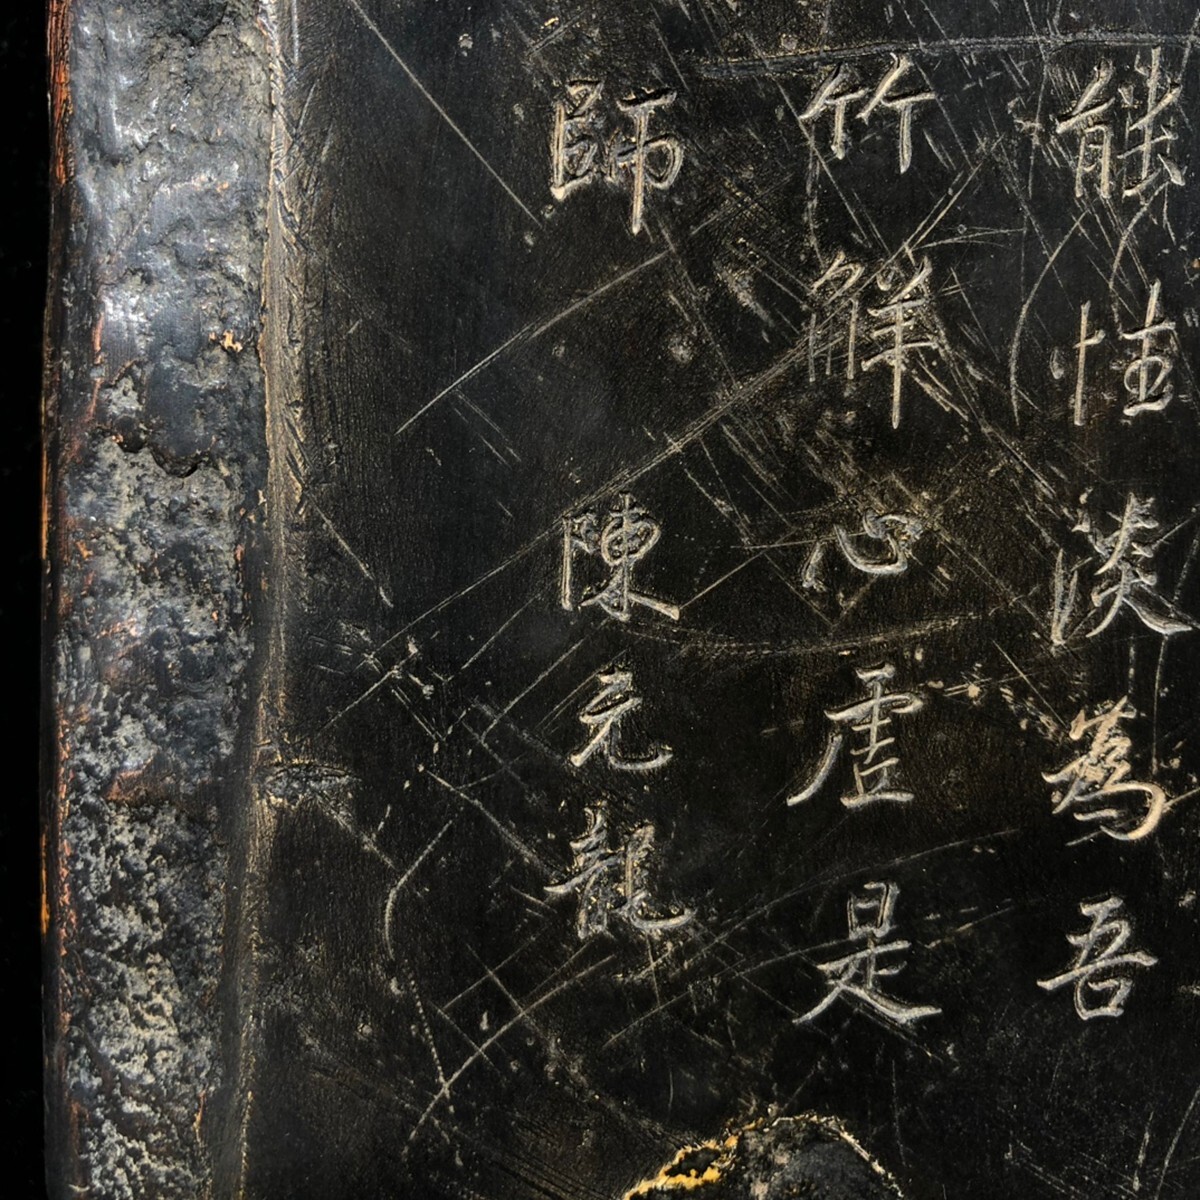 能性淡為吾
竹觧心虛是
師 陳元龍